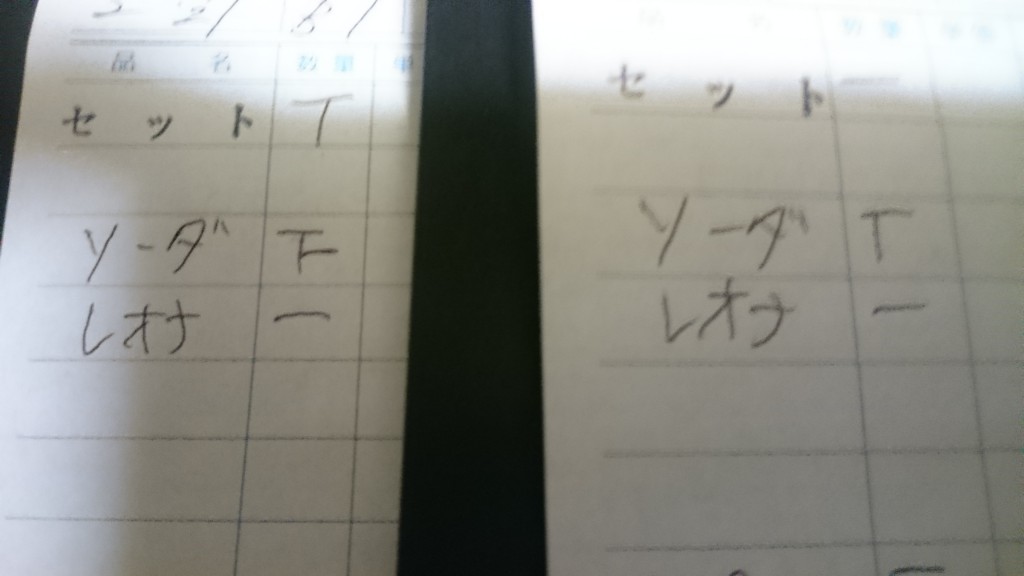 品 名 数量 単
セット T
ソーダ 下
レオナ 一
数量
セット 一
ソーダ T
レオナ 一